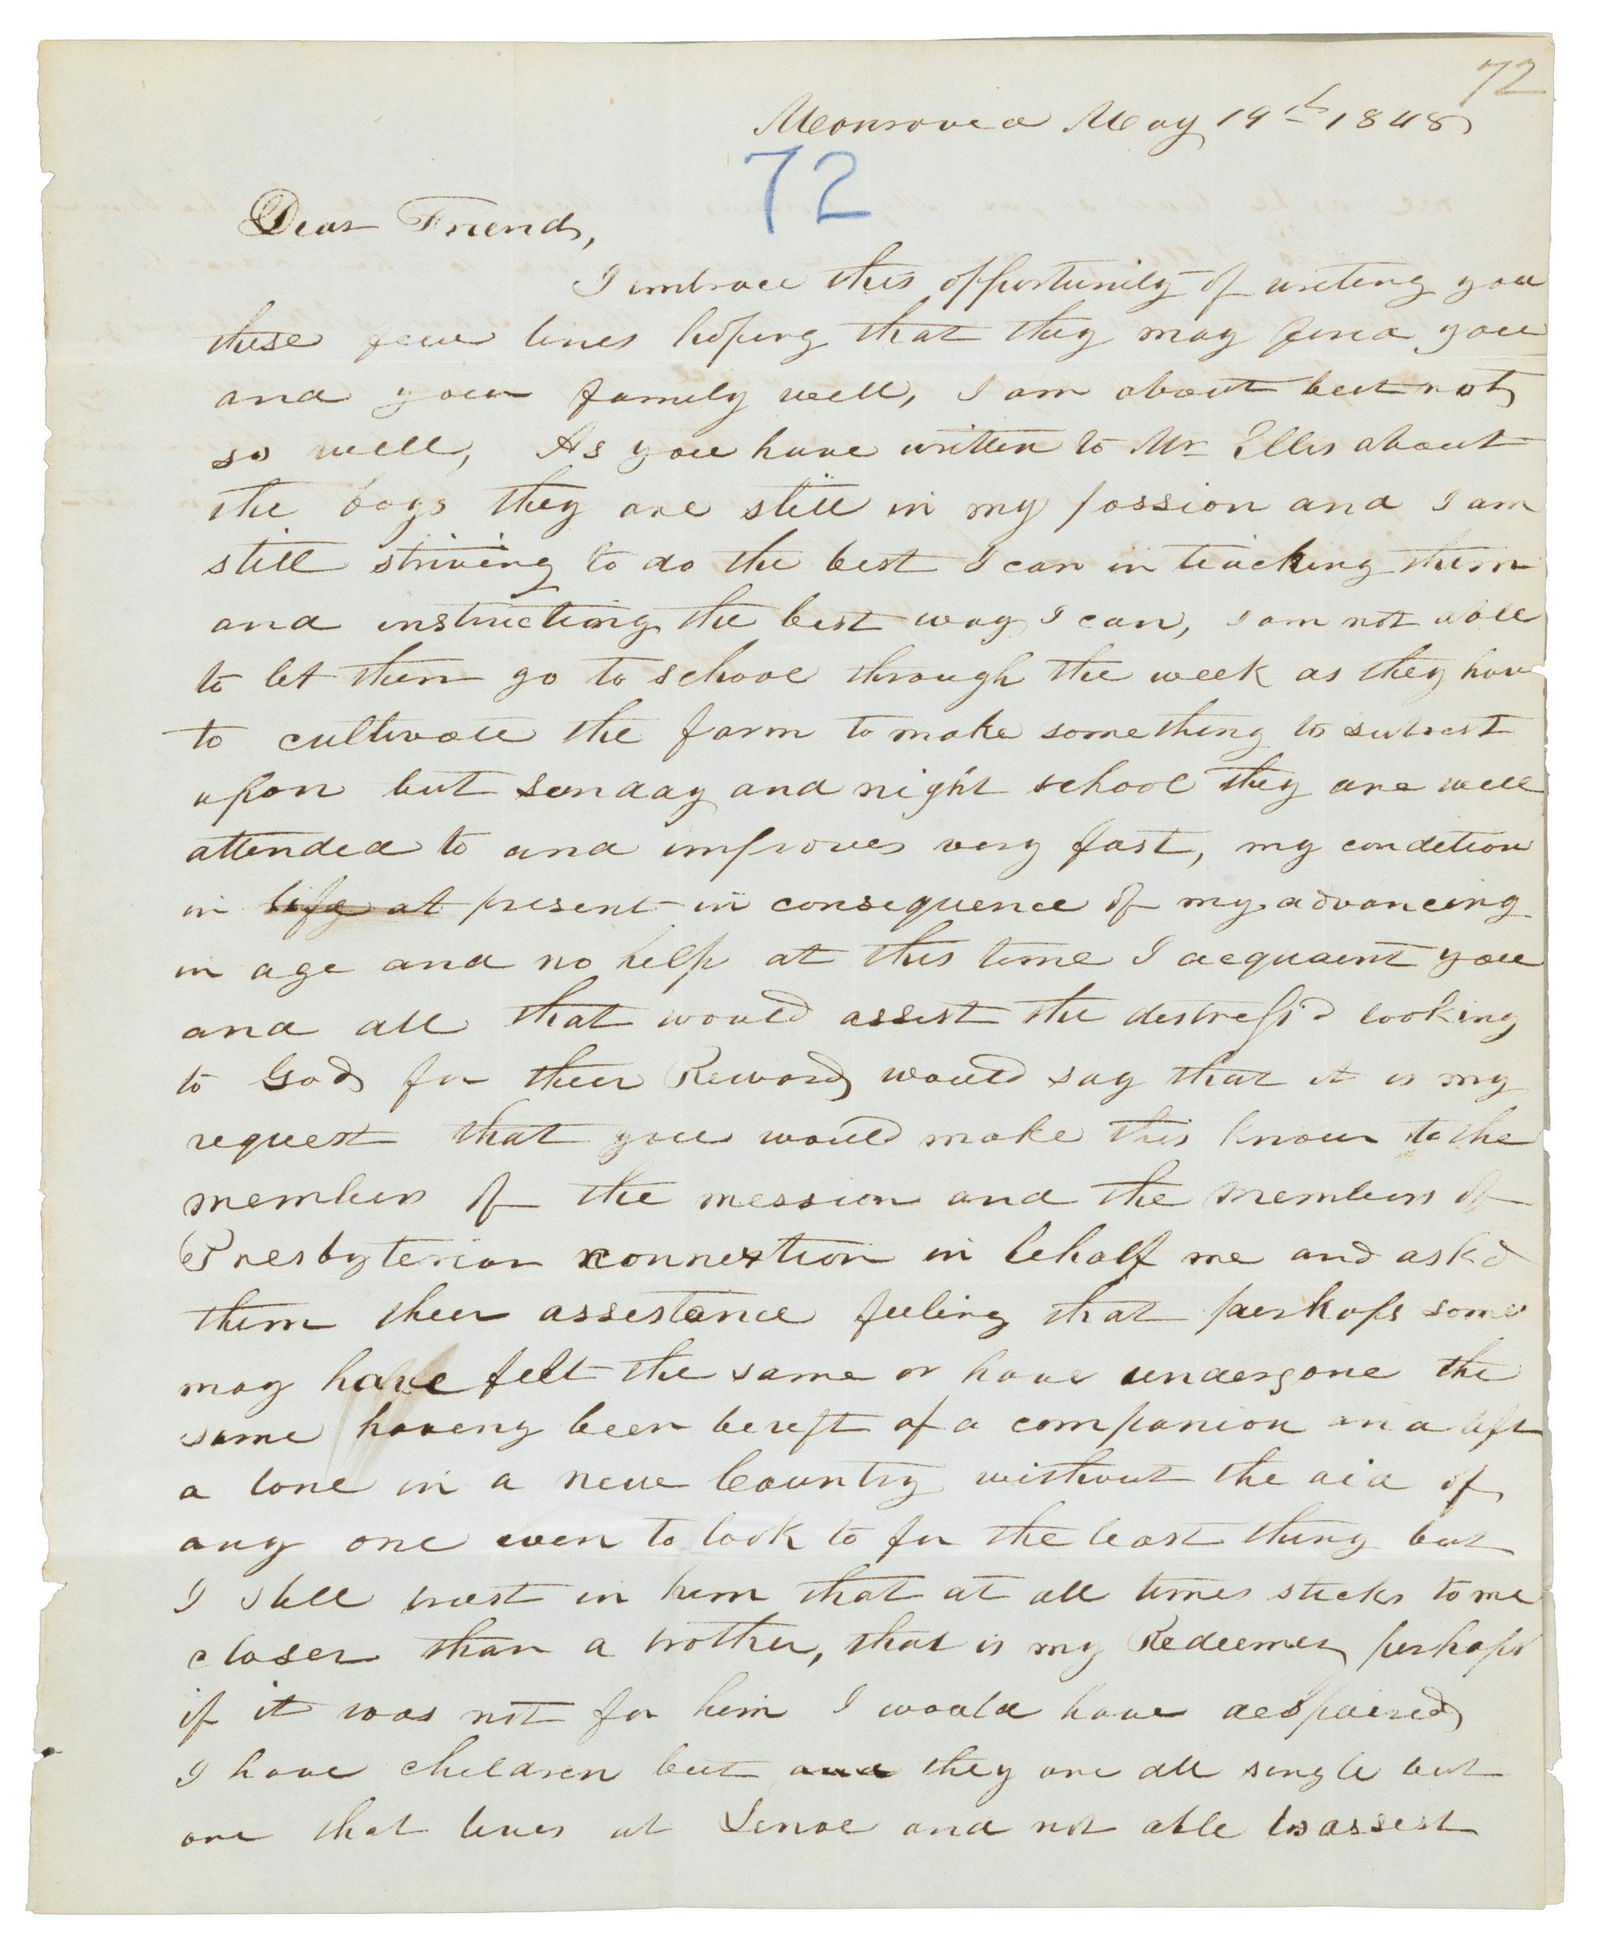 72
Monrovia May 19th 1848
72
Dear Friend,
I embrace this opportunity of writing you
these few lines hoping that they may find you
and your family well, I am about but not
so well, As you have written to Mr Ellis about
the boys they are still in my possion and I am
still striving to do the best I can in teacking them
and instructing the best way I can, I am not able
to let them go to school through the week as they have
to cultivate the farm to make something to subsest
upon but Sunday and night school they are well
attended to and improves very fast, my condition
in life at present in consequence of my advancing
in age and no help at this time I acquaint you
and all that would assist the distress'd looking
to God for their Reward would say that it is my
request that you would make this know to the
members of the mession and the members of
Presbyterian connextion in behalf me and ask'd
them their assestance feeling that perhaps some
may have felt the same or have undergone the
same having been bereft of a companion and left
a lone in a new Country without the aid of
any one even to look to for the least thing but
I still trust in him that at all times sticks to me
closer than a brother, that is my Redeemer perhaps
if it was not for him I would have despaired
I have children but and they are all single but
one that lives at Sinoe and not able to assest